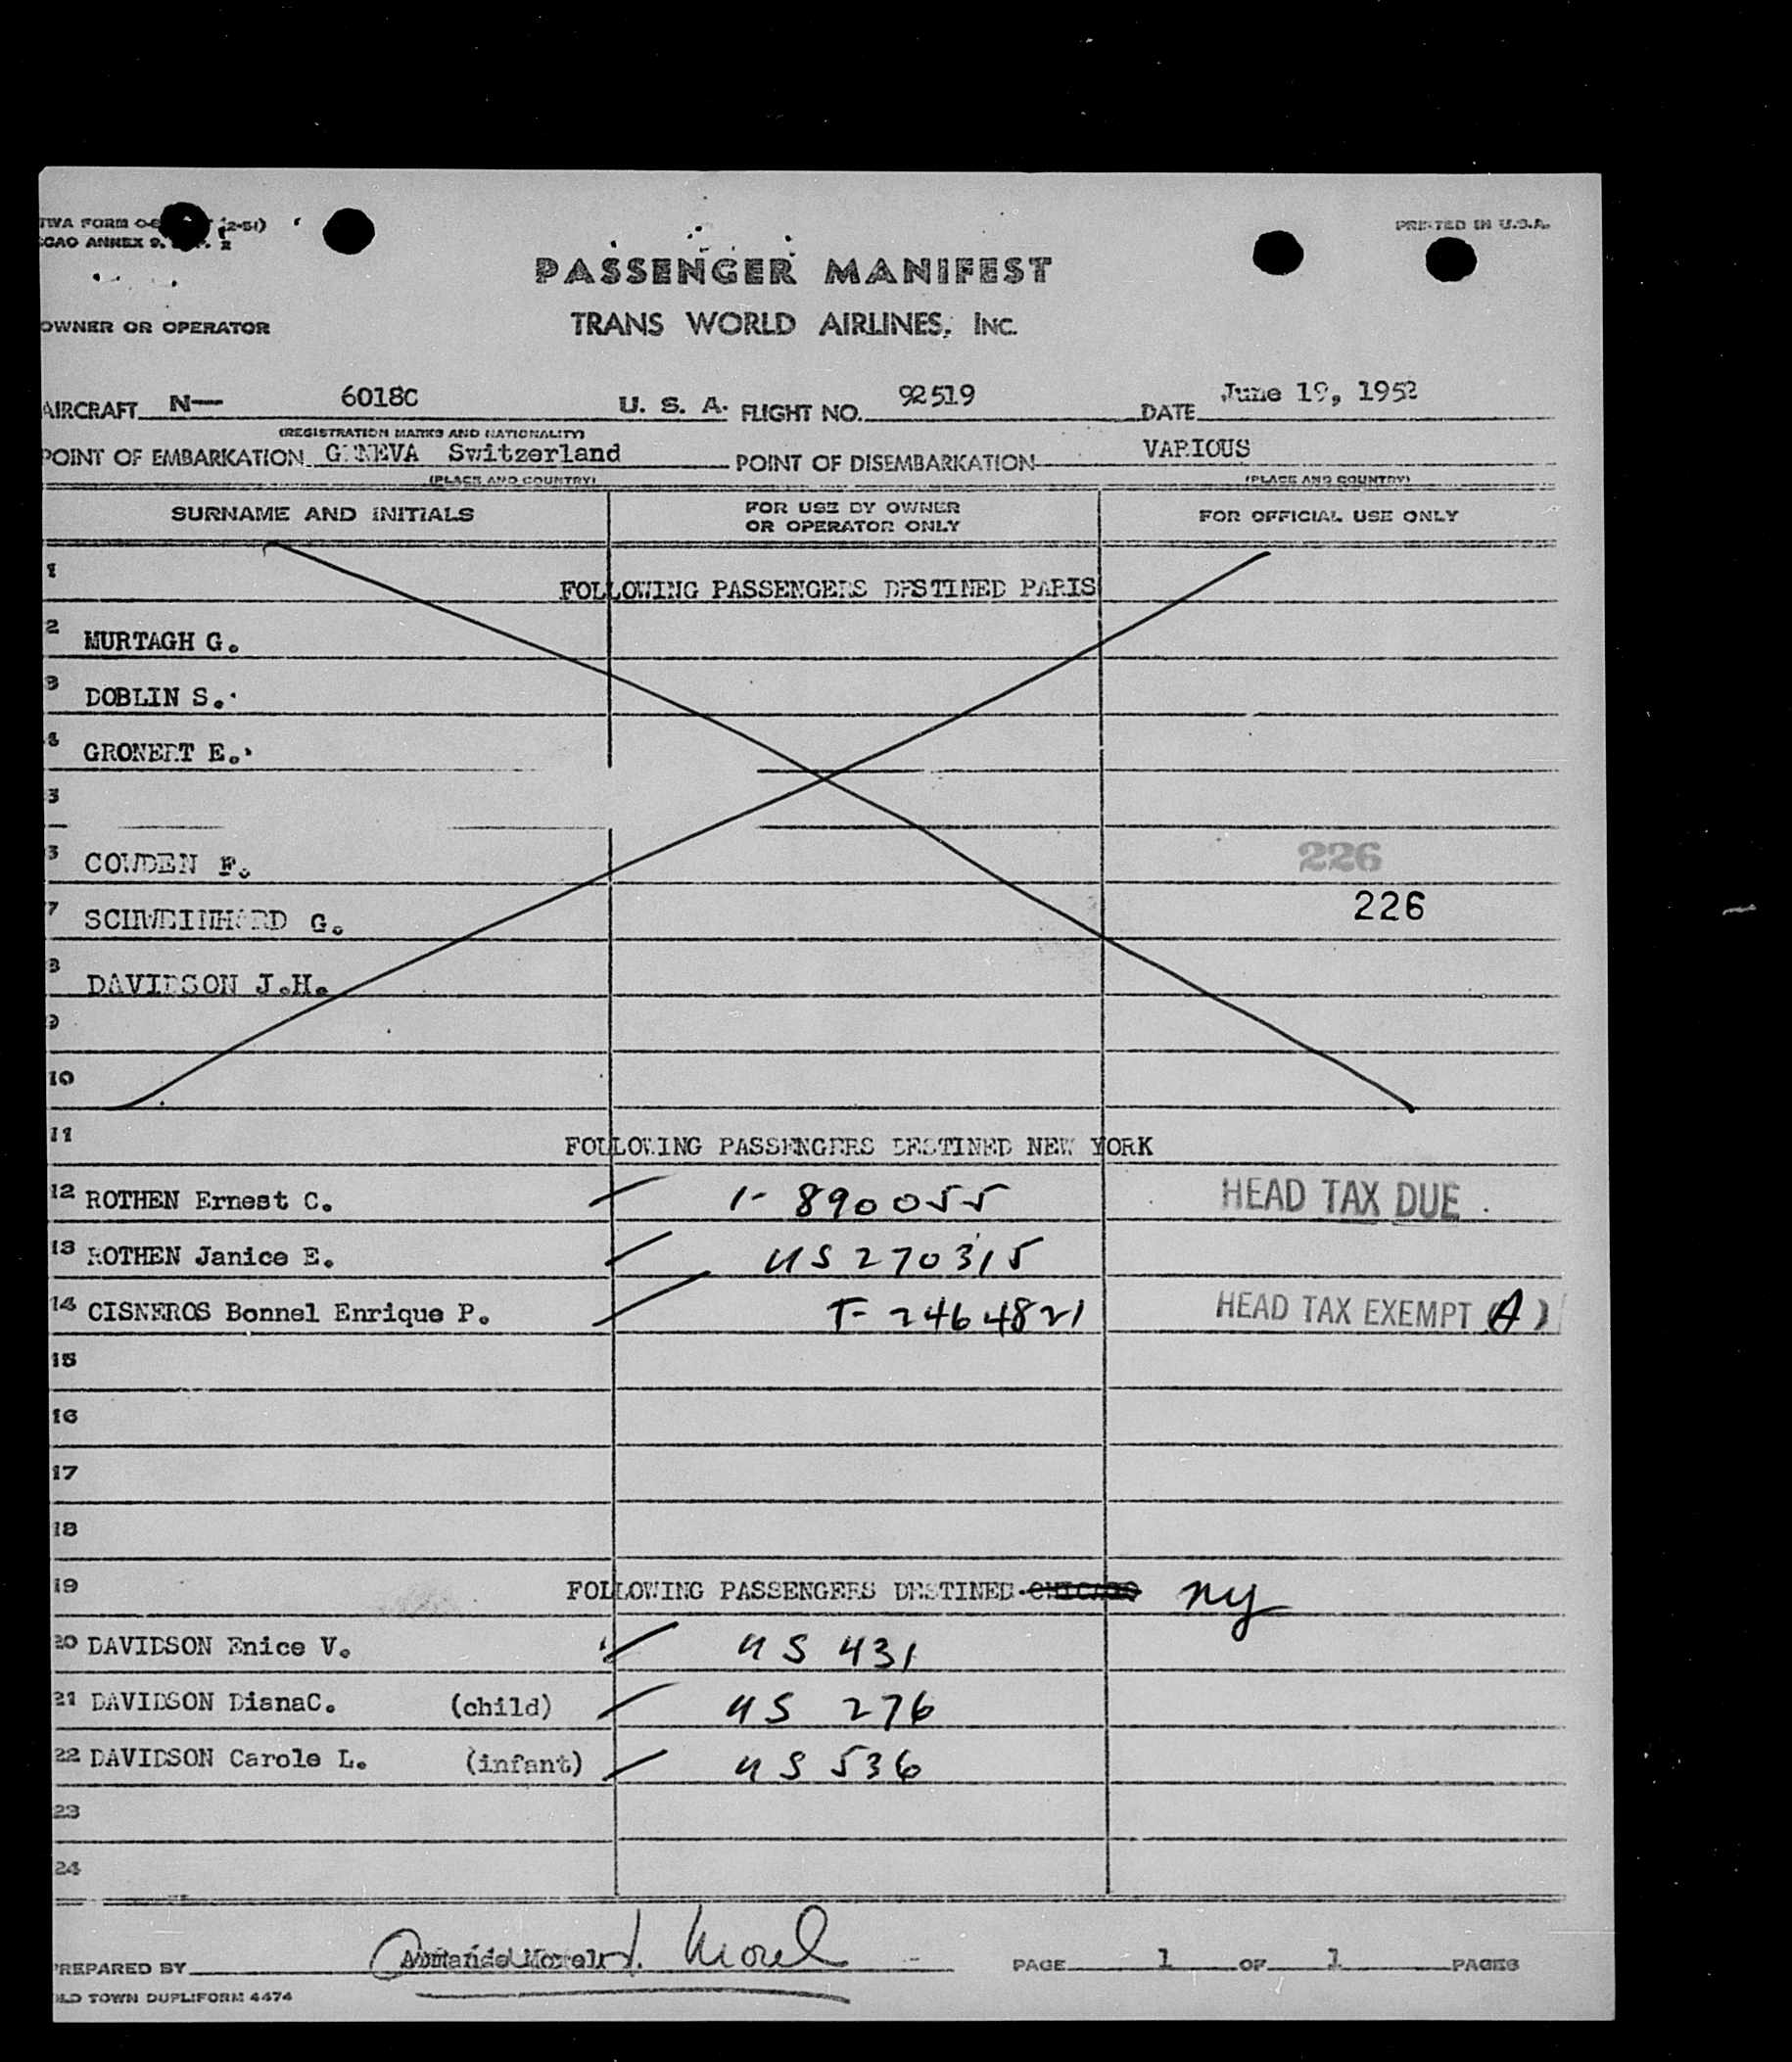 TWA FORM (2-51)
ICAO ANNEX 9.
PRINTED IN U.S.A.
PASSENGER MANIFEST
OWNER OR OPERATOR
TRANS WORLD AIRLINES, INC.
AIRCRAFT N— 6018C U. S. A. FLIGHT NO. 92519 DATE June 19, 1952
(REGISTRATION MARKS AND NATIONALITY)
POINT OF EMBARKATION GENEVA Switzerland POINT OF DISEMBARKATION VARIOUS
(PLACE AND COUNTRY) (PLACE AND COUNTRY)
SURNAME AND INITIALS FOR USE BY OWNER OR OPERATOR ONLY FOR OFFICIAL USE ONLY
1 FOLLOWING PASSENGERS DESTINED PARIS
2 MURTAGH G.
3 DOBLIN S.
4 GRONERT E.
5
6 COWDEN F. 226
7 SCHWEINHARD G. 226
8 DAVIDSON J.H.
9
10
11 FOLLOWING PASSENGERS DESTINED NEW YORK
12 ROTHEN Ernest C. 1- 890055 HEAD TAX DUE
13 ROTHEN Janice E. US 270315
14 CISNEROS Bonnel Enrique P. T- 2464821 HEAD TAX EXEMPT (A)
15
16
17
18
19 FOLLOWING PASSENGERS DESTINED CHICAGO ny
20 DAVIDSON Enice V. US 431
21 DAVIDSON DianaC. (child) US 276
22 DAVIDSON Carole L. (infant) US 536
23
24
PREPARED BY Morel PAGE 1 OF 1 PAGES
OLD TOWN DUPLIFORM 4474